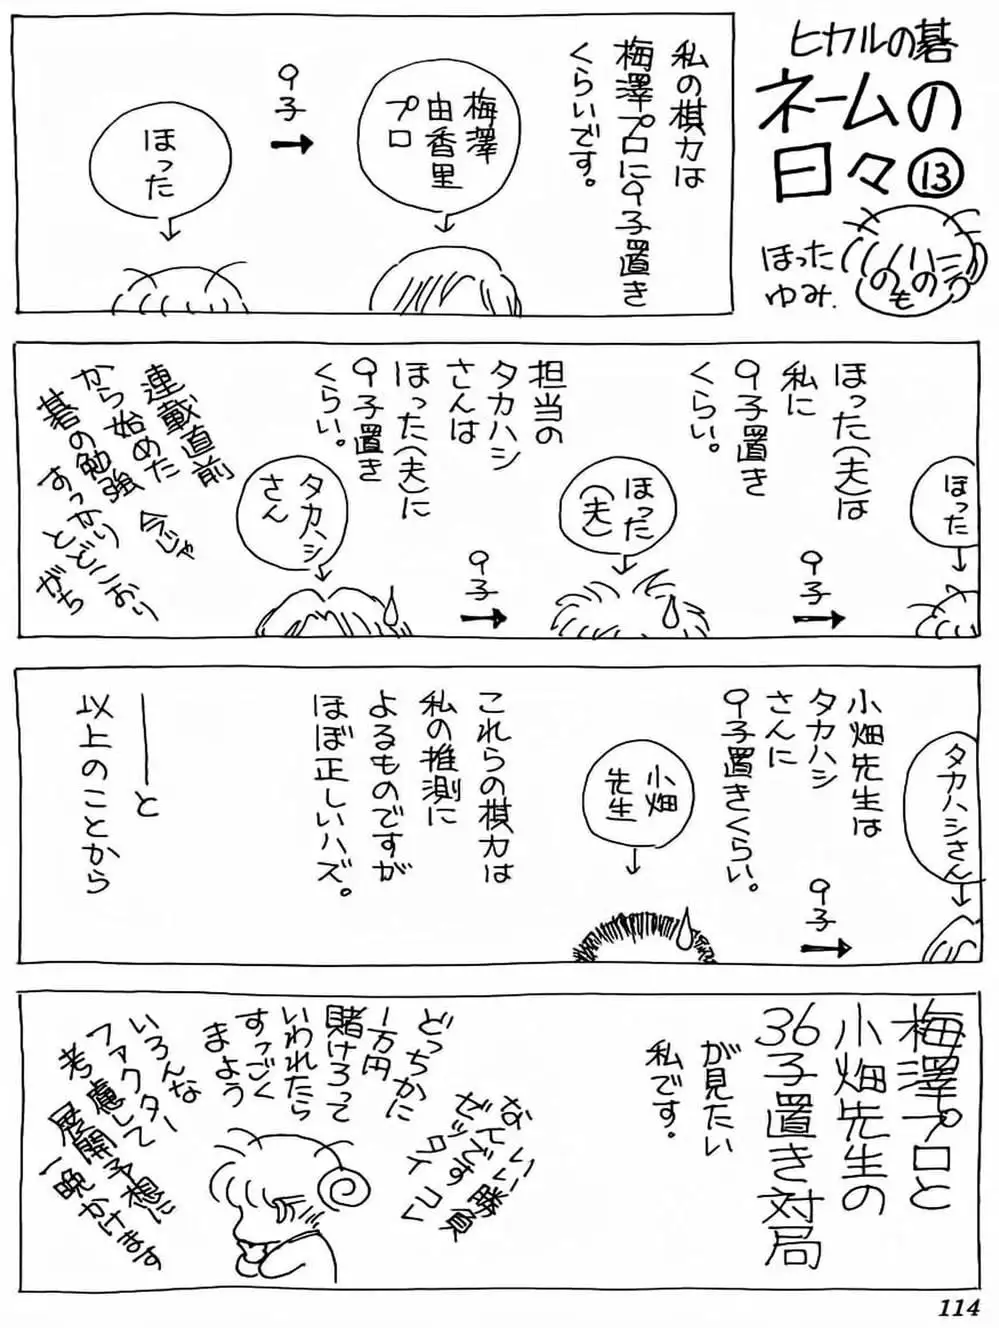 ヒカルの碁
ネームの
日々⑬
ほった
ゆみ.
のもの
私の棋力は
梅澤プロに9子置き
くらいです。
梅澤
由香里
プロ
9子
ほった
ほった(夫)は
私に
9子置き
くらい。
担当の
タカハシ
さんは
ほった(夫)に
9子置き
くらい。
ほった
9子
ほった
(夫)
9子
タカハシ
さん
連載直前
から始めた
碁の勉強
今じゃ
すっかり
とどこおり
がち
小畑先生は
タカハシ
さんに
9子置きくらい。
タカハシさん
9子
小畑
先生
これらの棋力は
私の推測に
よるものですが
ほぼ正しいハズ。
――と
以上のことから
梅澤プロと
小畑先生の
36子置き対局
が見たい
私です。
なんでい〜勝負
ゼッタイコレ
どっちかに
1万円
賭けろって
いわれたら
すっごく
まよう
いろんな
ファクター
考慮して
展開予想に
一晩かけます
114